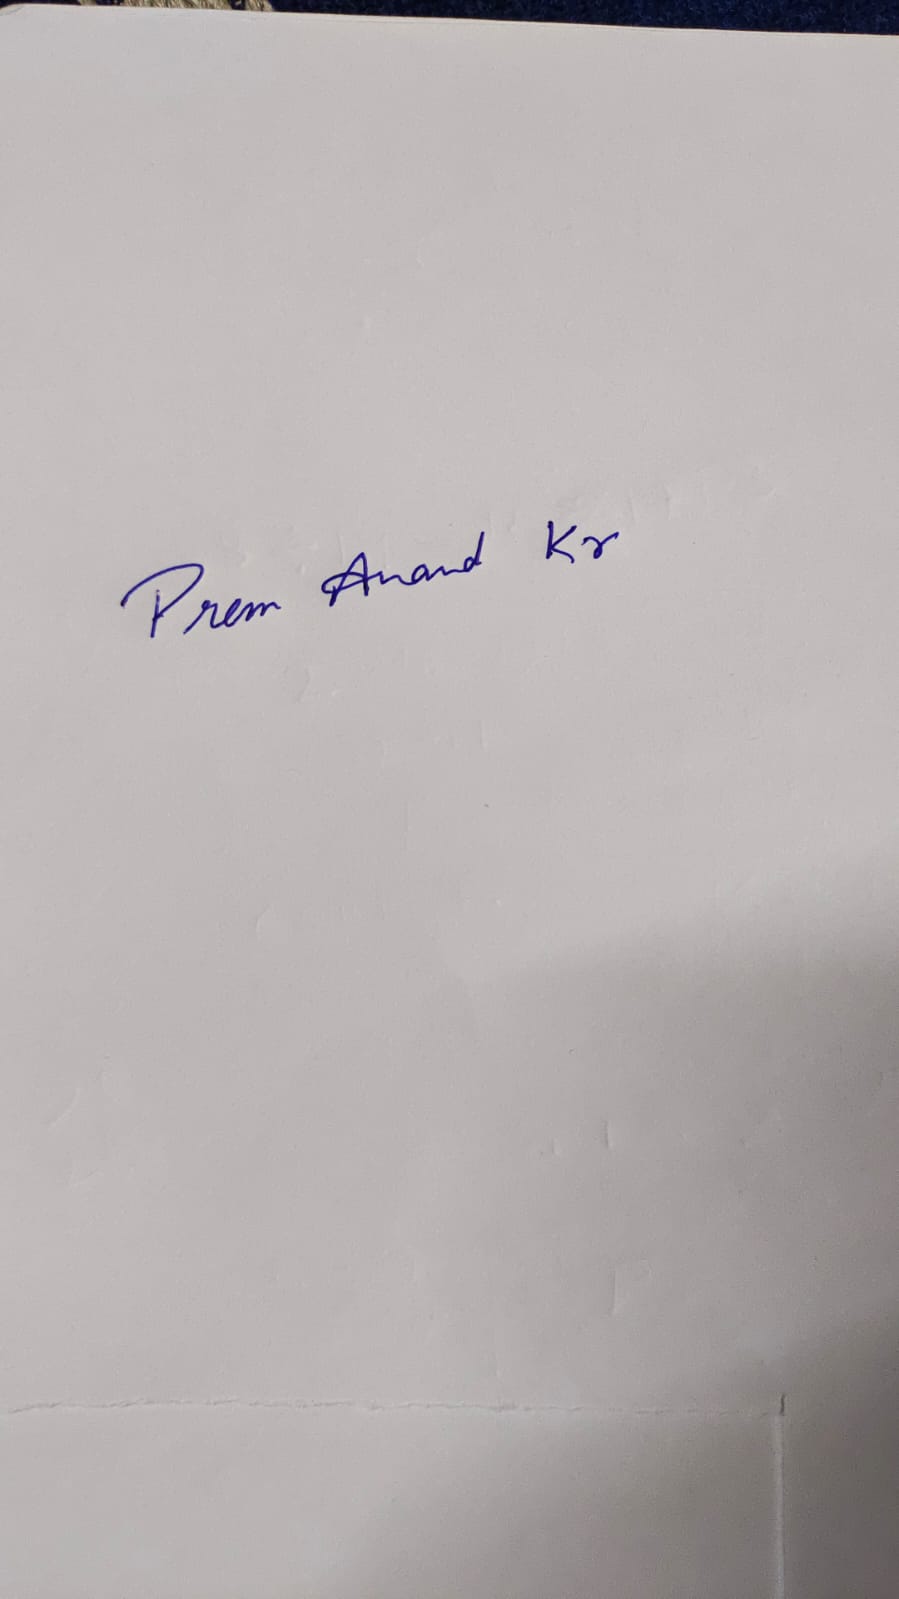 Prem Anand Kr